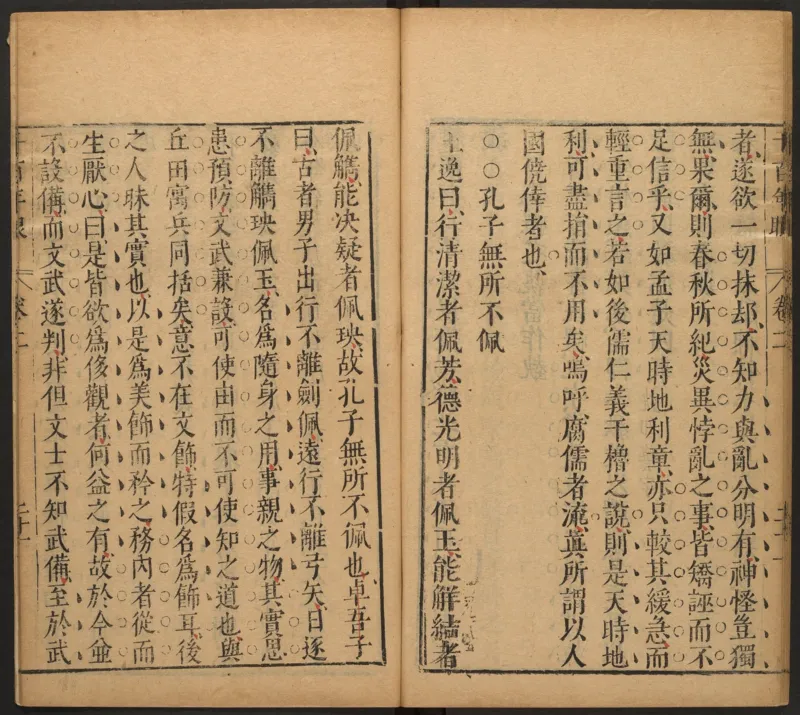 者遂欲一切抹却不知力與亂分明有神怪豈獨
無果爾則春秋所紀災異悖亂之事皆矯誣而不
足信乎又如孟子天時地利章亦只較其緩急而
輕重言之若如後儒仁義干櫓之說則是天時地
利可盡捐而不用矣嗚呼腐儒者流真所謂以人
國僥倖者也
○○孔子無所不佩
王逸曰行清潔者佩芳德光明者佩玉能解結者
佩觿能決疑者佩玦故孔子無所不佩也卓吾子
曰古者男子出行不離劍佩遠行不離弓矢日逐
不離觿玦佩玉名為隨身之用事親之物其實思
患預防文武兼設可使由而不可使知之道也與
丘田寓兵同括矣意不在文飾特假名為飾耳後
之人昧其實也以是為美飾而矜之務內者從而
生厭心曰是皆欲為侈觀者何益之有故於今並
不設備而文武遂判非但文士不知武備至於武
卷二